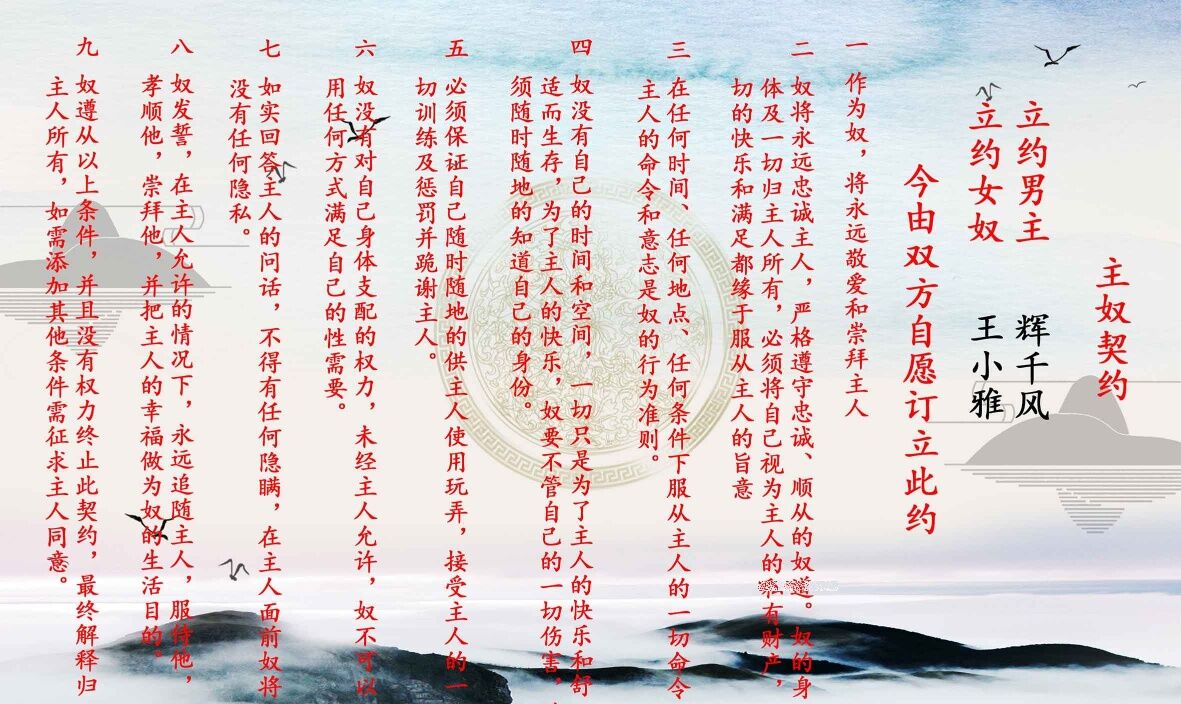 主奴契约
立约男主 辉千风
立约女奴 王小雅
今由双方自愿订立此约
一 作为奴，将永远敬爱和崇拜主人
二 奴将永远忠诚主人，严格遵守忠诚、顺从的奴道。奴的身
体及一切归主人所有，必须将自己视为主人的私有财产，
切的快乐和满足都缘于服从主人的旨意
三 在任何时间、任何地点、任何条件下服从主人的一切命令
主人的命令和意志是奴的行为准则。
四 奴没有自己的时间和空间，一切只是为了主人的快乐和舒
适而生存，为了主人的快乐，奴要不管自己的一切伤害，
须随时随地的知道自己的身份。
五 必须保证自己随时随地的供主人使用玩弄，接受主人的一
切训练及惩罚并跪谢主人。
六 奴没有对自己身体支配的权力，未经主人允许，奴不可以
用任何方式满足自己的性需要。
七 如实回答主人的问话，不得有任何隐瞒，在主人面前奴将
没有任何隐私。
八 奴发誓，在主人允许的情况下，永远追随主人，服侍他，
孝顺他，崇拜他，并把主人的幸福做为奴的生活目的。
九 奴遵从以上条件，并且没有权力终止此契约，最终解释归
主人所有，如需添加其他条件需征求主人同意。